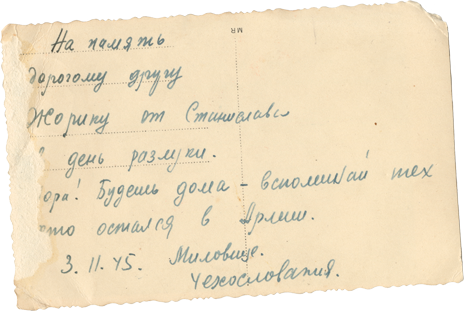 MR
На память
дорогому другу
Жорику от Станислава
день разлуки.
ора! Будешь дома - вспоминай тех
кто остался в Армии.
3.11.45. Миловице.
Чехословакия.